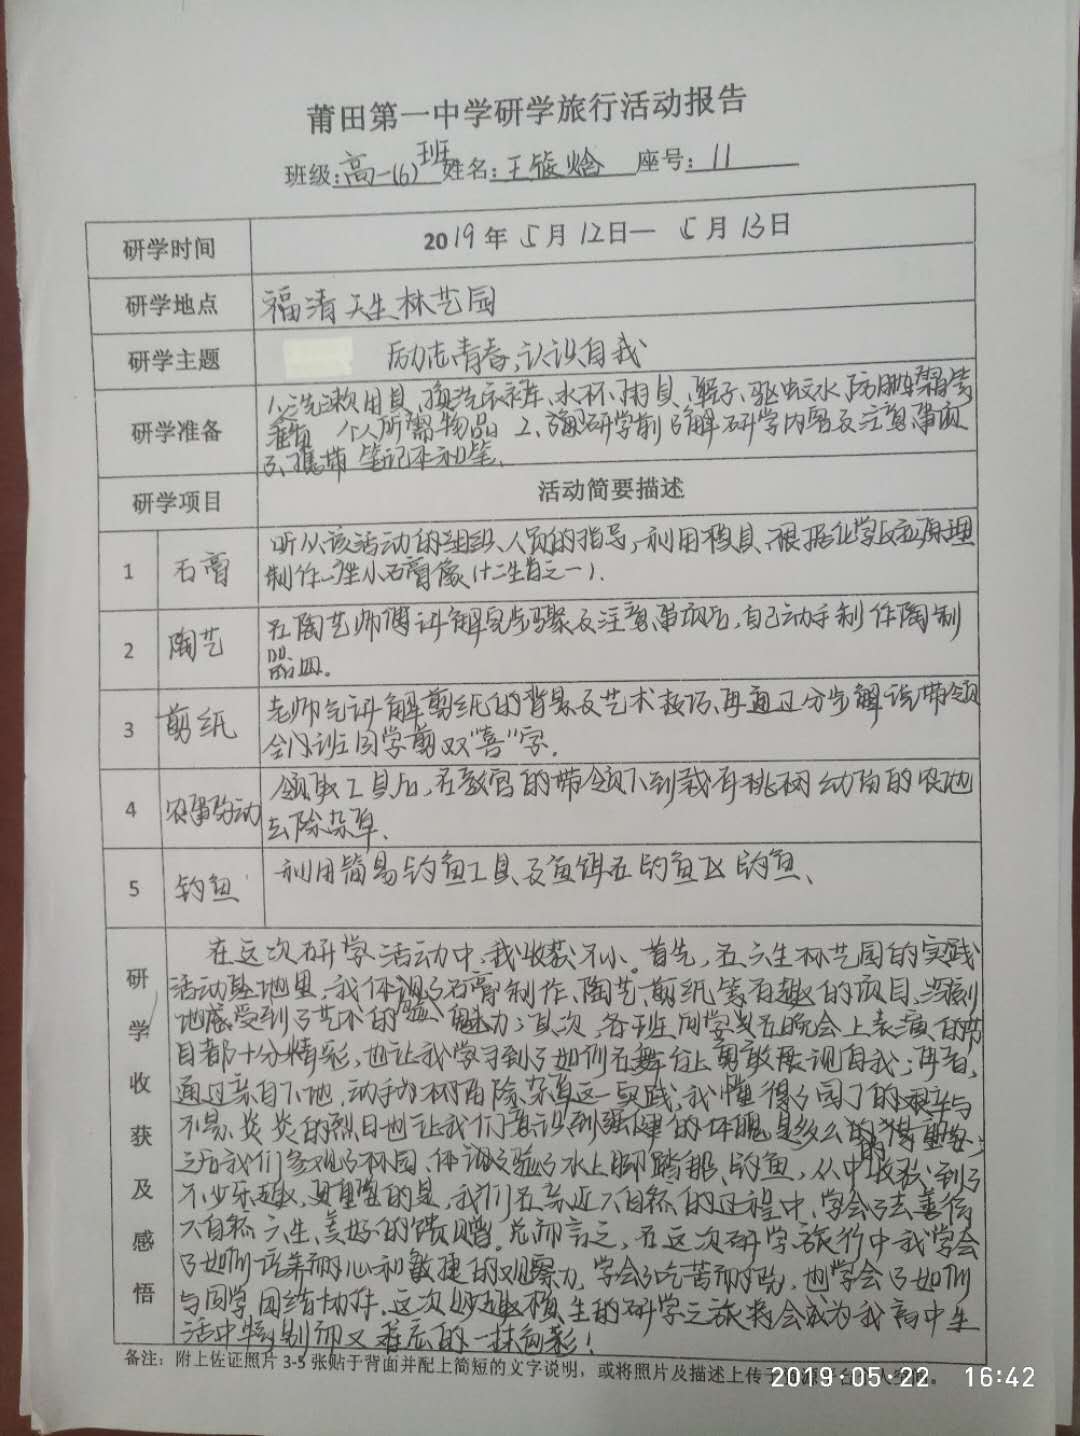 莆田第一中学研学旅行活动报告
班级:高一(6)班 姓名:王 焓 座号:11
研学时间 2019年5月12日—5月13日
研学地点 福清天生林艺园
研学主题 励志青春,认识自我
研学准备
1、洗漱用具、换洗衣裤、水杯、雨具、鞋子、驱蚊水、防晒霜等
个人所需物品 2、研学前了解研学内容及注意事项
3、携带笔记本和笔、
研学项目 活动简要描述
1 石膏
听从该活动的组织、人员的指导,利用模具、根据化学反应原理
制作一座小石膏像(十二生肖之一).
2 陶艺
在陶艺师傅讲解完步骤及注意事项后,自己动手制作陶制
品皿.
3 剪纸
老师先讲解剪纸的背景及艺术技巧,再通过分步解说带领
全体班同学剪双“喜”字.
4 农事劳动
领取工具后,在教官的带领下到栽有桃树幼苗的农地
去除杂草.
5 钓鱼
利用简易钓鱼工具及鱼饵在钓鱼区钓鱼、
研学收获及感悟
在这次研学活动中,我收获不小。首先,在天生林艺园的实践
活动基地里,我体验了石膏制作、陶艺、剪纸等有趣的项目,深刻
地感受到了艺术的魅力;其次,各班同学在晚会上表演的节
目都十分精彩,也让我学习到了如何在舞台上勇敢展现自我;再者,
通过亲自下地,动手为树苗除杂草这一实践,我懂得了园丁的艰辛与
不易,炎炎的烈日也让我们意识到强健的体魄是多么的重要;
之后我们参观了林园、体验了水上脚踏船、钓鱼,从中收获到了
不少乐趣,更重要的是,我们在亲近大自然的过程中,学会了去善待
大自然天生、美好的馈赠。总而言之,在这次研学旅行中我学会
了如何培养耐心和敏捷的观察力,学会了吃苦耐劳,也学会了如何
与同学团结协作,这次妙趣横生的研学之旅将会成为我高中生
活中特别而又难忘的一抹色彩!
备注:附上佐证照片 3-5 张贴于背面并配上简短的文字说明,或将照片及描述上传于
2019·05·22 16:42